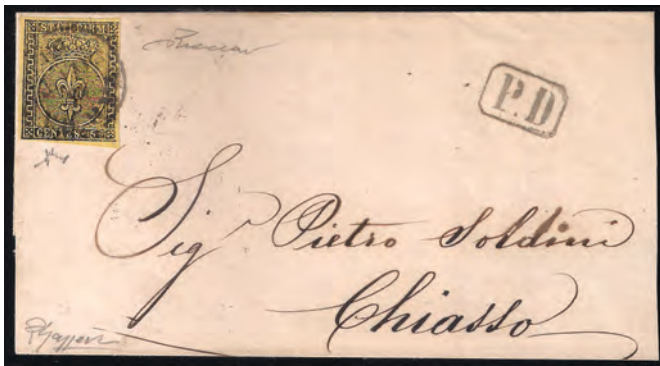 STATI PARM.
CENTES. 5
P.D
Sig. Pietro Soldini
Chiasso